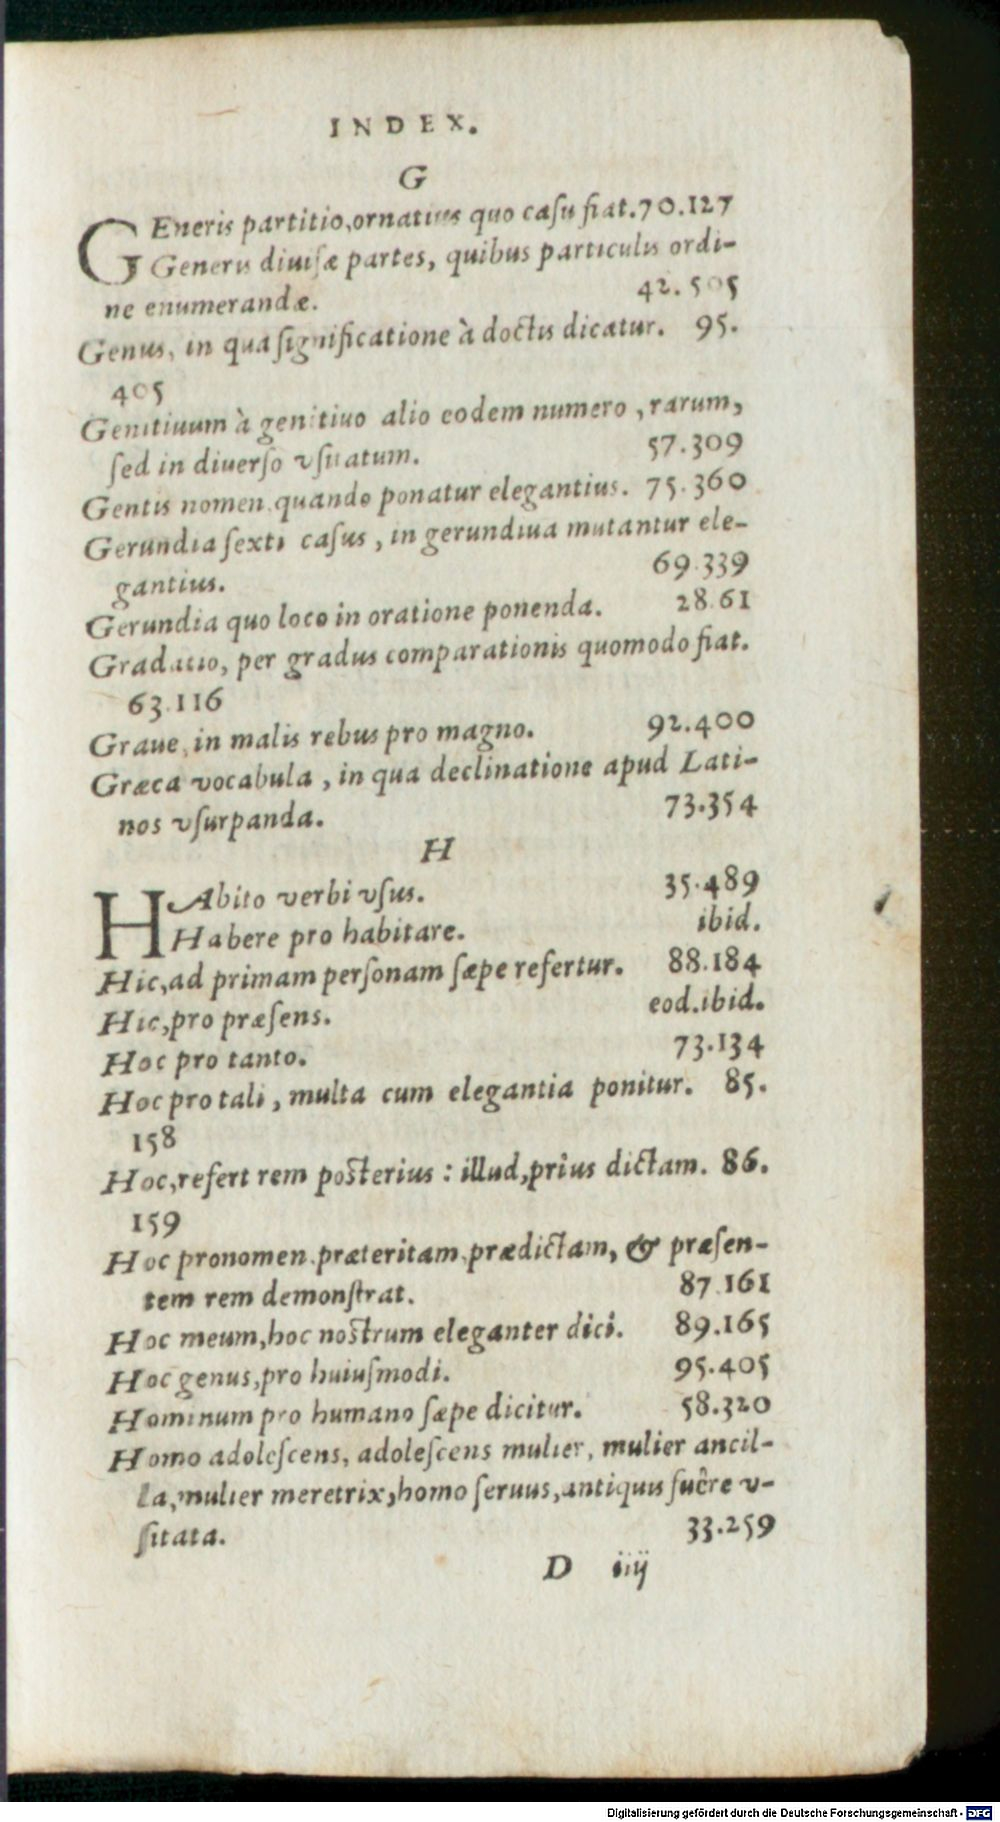 INDEX.
G
GEneris partitio, ornatius quo casu fiat. 70.127
Generis diuisæ partes, quibus particulis ordi-
ne enumerandæ. 42.505
Genus, in qua significatione à doctis dicatur. 95.
405
Genitiuum à genitiuo alio eodem numero, rarum,
sed in diuerso vsitatum. 57.309
Gentis nomen quando ponatur elegantius. 75.360
Gerundia sexti casus, in gerundiua mutantur ele-
gantius. 69.339
Gerundia quo loco in oratione ponenda. 28.61
Gradatio, per gradus comparationis quomodo fiat.
63.116
Graue, in malis rebus pro magno. 92.400
Græca vocabula, in qua declinatione apud Lati-
nos vsurpanda. 73.354
H
HAbito verbi vsus. 35.489
Habere pro habitare. ibid.
Hic, ad primam personam sæpe refertur. 88.184
Hic, pro præsens. eod. ibid.
Hoc pro tanto. 73.134
Hoc pro tali, multa cum elegantia ponitur. 85.
158
Hoc, refert rem posterius: illud, prius dictam. 86.
159
Hoc pronomen præteritam, prædictam, & præsen-
tem rem demonstrat. 87.161
Hoc meum, hoc nostrum eleganter dici. 89.165
Hoc genus, pro huiusmodi. 95.405
Hominum pro humano sæpe dicitur. 58.320
Homo adolescens, adolescens mulier, mulier ancil-
la, mulier meretrix, homo seruus, antiquis fuêre v-
sitata. 33.259
D iiij
Digitalisierung gefördert durch die Deutsche Forschungsgemeinschaft - DFG